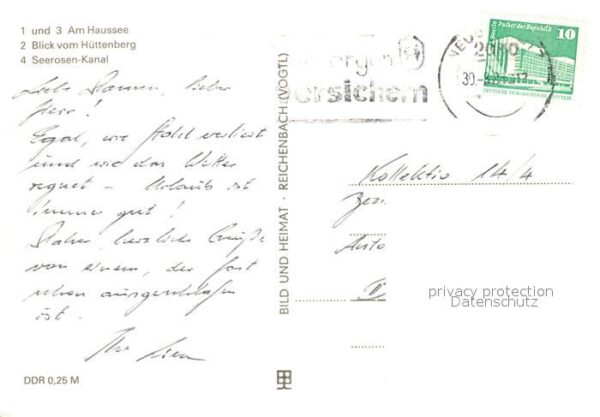 1 und 3 Am Haussee
2 Blick vom Hüttenberg
4 Seerosen-Kanal
Liebe Damen, lieber
Herr!
Egal, wie Stahl verliert
und wie das Wetter
regnet – Urlaub ist
immer gut!
Daher herzliche Grüße
von einem, der fast
schon ausgeschlafen
ist.
Ihr
DDR 0,25 M
BILD UND HEIMAT · REICHENBACH (VOGTL)
ersichern
2010
30.
Berlin, Palast der Republik
10
DEUTSCHE DEMOKRATISCHE REPUBLIK
Kollektiv 14/4
privacy protection
Datenschutz